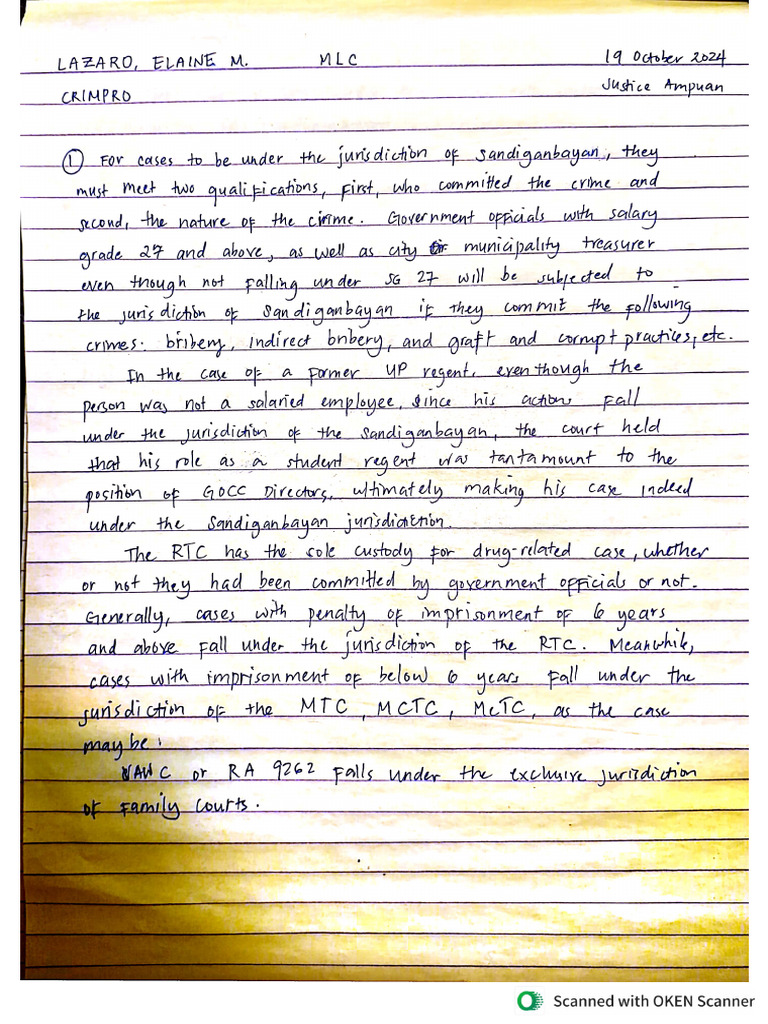 LAZARO, ELAINE M. MLC 19 October 2024
CRIMPRO Justice Ampuan
① For cases to be under the jurisdiction of Sandiganbayan, they
must meet two qualifications, first, who committed the crime and
second, the nature of the crime. Government officials with salary
grade 27 and above, as well as city or municipality treasurer
even though not falling under SG 27 will be subjected to
the jurisdiction of Sandiganbayan if they commit the following
crimes: bribery, indirect bribery, and graft and corrupt practices, etc.
In the case of a former UP regent, even though the
person was not a salaried employee, since his actions fall
under the jurisdiction of the Sandiganbayan, the court held
that his role as a student regent was tantamount to the
position of GOCC Directors, ultimately making his case indeed
under the Sandiganbayan jurisdiction.
The RTC has the sole custody for drug-related case, whether
or not they had been committed by government officials or not.
Generally, cases with penalty of imprisonment of 6 years
and above fall under the jurisdiction of the RTC. Meanwhile,
cases with imprisonment of below 6 years fall under the
jurisdiction of the MTC, MCTC, MeTC, as the case
may be.
VAWC or RA 9262 falls under the exclusive jurisdiction
of Family Courts.
Scanned with OKEN Scanner